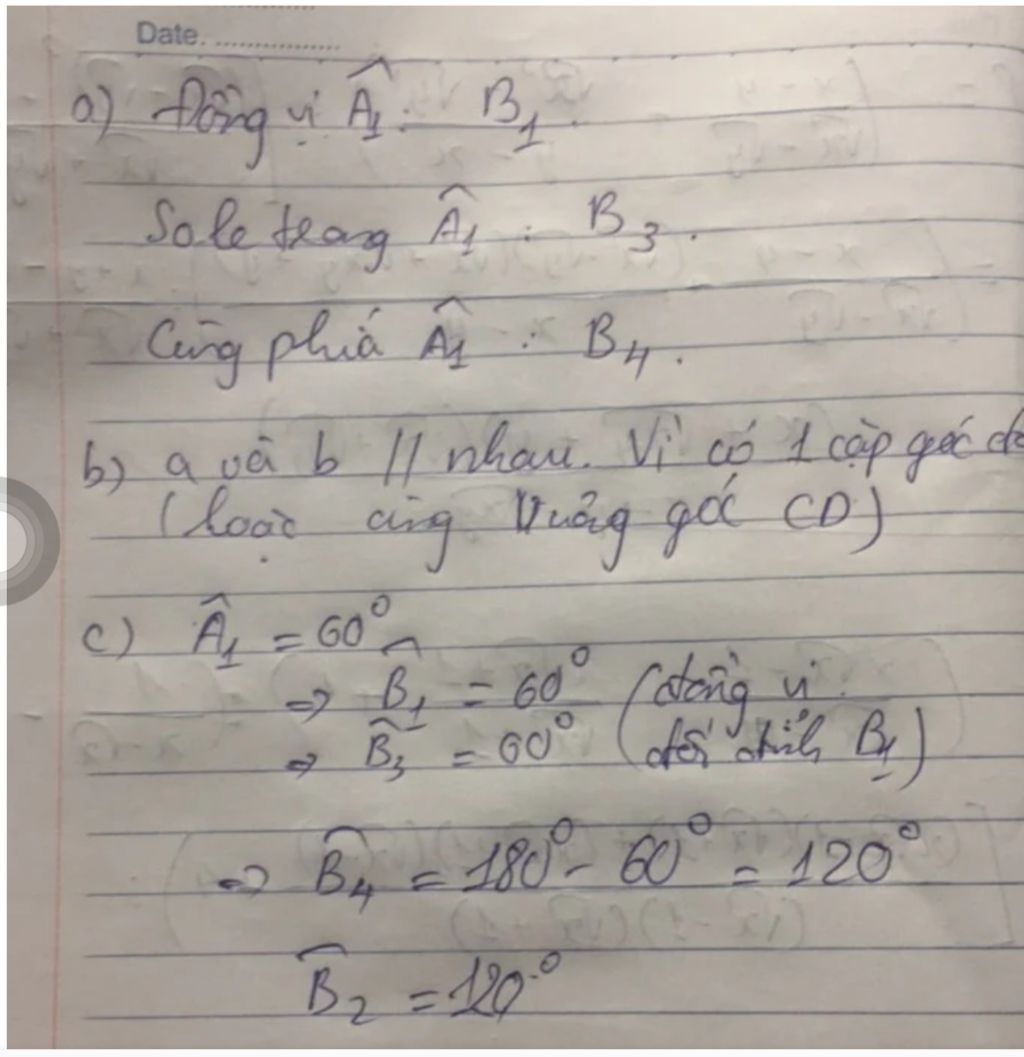 Date. ..................
a) Đồng vị Â₁ : B₁.
Sole trong Â₁ : B₃.
Cùng phiá Â₁ : B₄.
b) a và b // nhau. Vì có 1 cặp góc
(hoặc cùng vuông góc CD)
c) Â₁ = 60°
=> B̂₁ = 60° (đồng vị
=> B̂₃ = 60° đối đỉnh B₁)
=> B̂₄ = 180° - 60° = 120°
B̂₂ = 120°